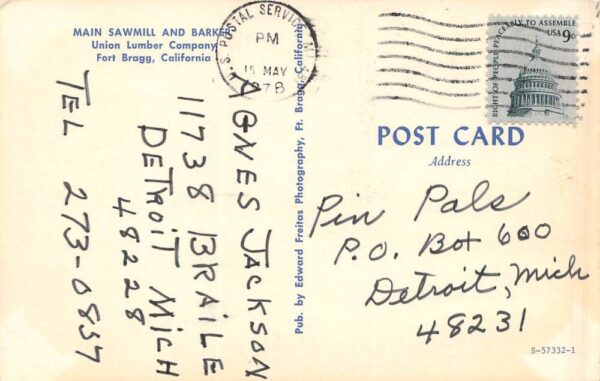 MAIN SAWMILL AND BARKER
Union Lumber Company
Fort Bragg, California
U.S. POSTAL SERVICE MI
PM
15 MAY
1978
RIGHT OF PEOPLE PEACEABLY TO ASSEMBLE
USA 9c
AGNES JACKSON
11738 BRAILE
DETROIT MICH
48228
TEL 273-0837
Pub. by Edward Freitas Photography, Ft. Bragg, California
POST CARD
Address
Pin Pals
P.O. Box 600
Detroit, Mich
48231
S-57332-1